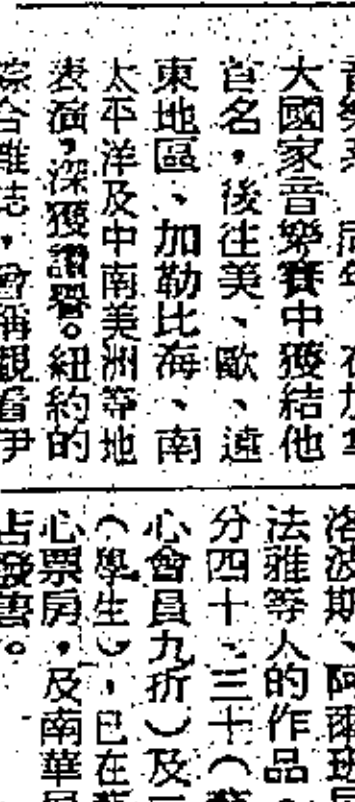 大國家音樂賽中獲結他
首名，後往美、歐、遠
東地區、加勒比海、南
太平洋及中南美洲等地
表演，深獲讚譽。紐約的
綜合雜誌，曾稱觀看伊
洛波斯、阿爾班尼
法雅等人的作品。
分四十、三十（藝
心會員九折）及二
（學生），已在藝
心票房，及南華
占發售。